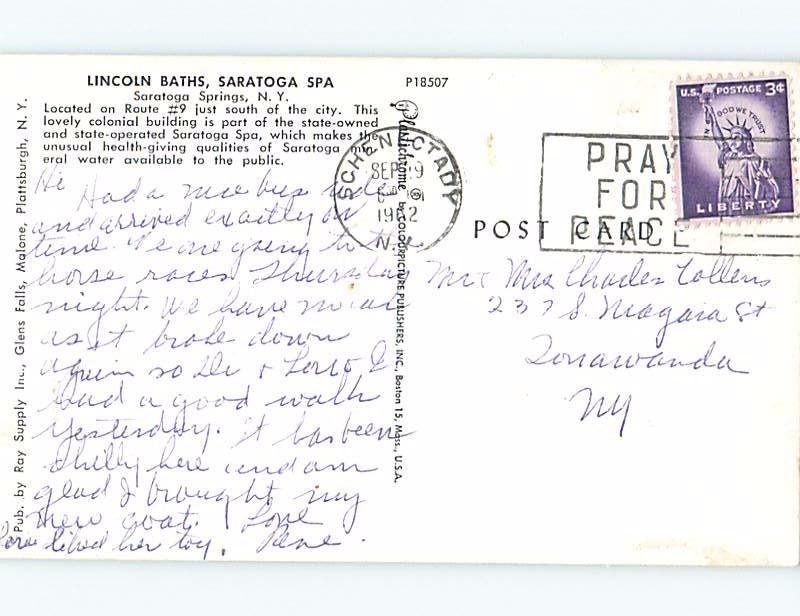 LINCOLN BATHS, SARATOGA SPA
Saratoga Springs, N. Y.
Located on Route #9 just south of the city. This
lovely colonial building is part of the state-owned
and state-operated Saratoga Spa, which makes the
unusual health-giving qualities of Saratoga min-
eral water available to the public.
P18507
Pub. by Ray Supply Inc., Glens Falls, Malone, Plattsburgh, N. Y.
Plastichrome by COLOURPICTURE PUBLISHERS, INC., Boston 15, Mass., U.S.A.
SCHENECTADY
SEP 19
1962
N.Y.
PRAY
FOR
PEACE
U.S. POSTAGE 3¢
IN GOD WE TRUST
LIBERTY
POST CARD
Hi
Had a nice bus ride
and arrived exactly on
time. We are going to the
horse races Thursday
night. We have no car
as it broke down
again so & I
had a good walk
yesterday. It has been
chilly here and am
glad I brought my
new coat. Love
liked her toy.
Mr & Mrs Charles Collens
237 S. Niagara St
Tonawanda
NY